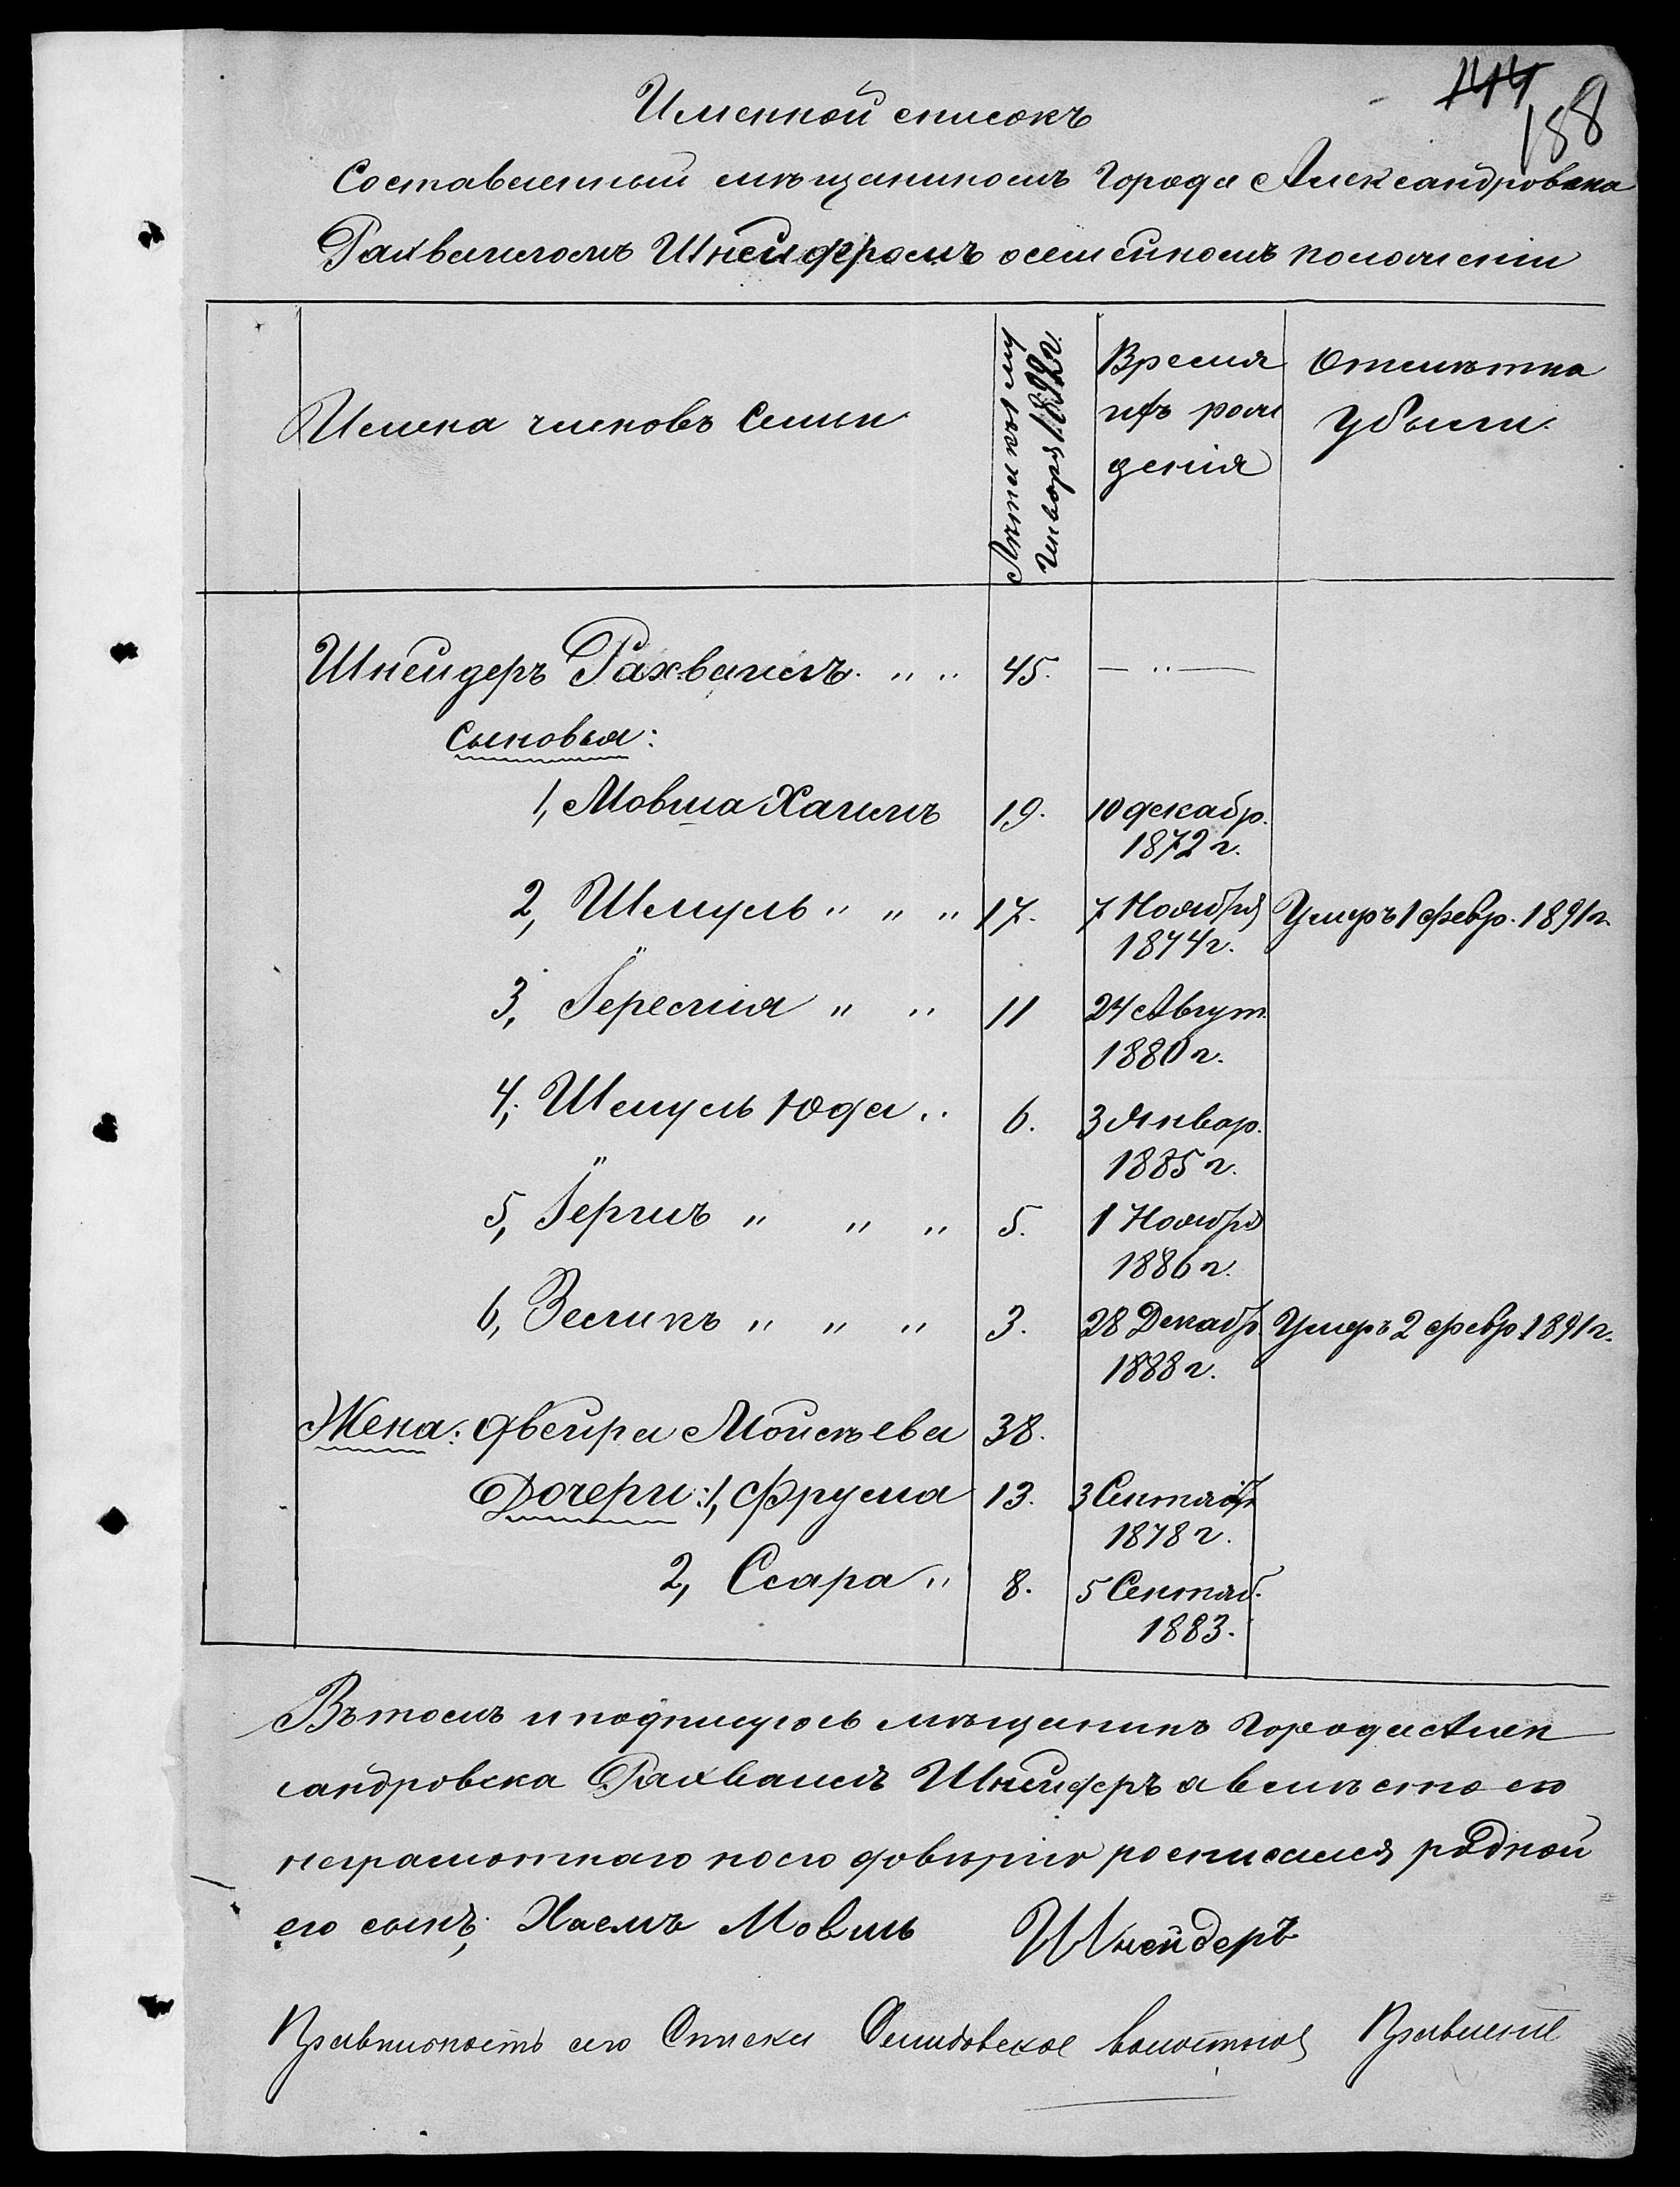 144
188
Именной списокъ
Составленный мѣщаниномъ города Александровска
Рахваиломъ Шнейдеромъ о семейномъ положеніи
Имена членовъ семьи
1891 года.
Время
ихъ рож
денія
Отмѣтка
убыли.
Шнейдеръ Рахваилъ. " " 45. — " —
Сыновья:
1, Мовша Хаимъ 19. 10 декабр.
1872 г.
2, Шмуль " " " 17. 7 Ноября Умеръ 1 февр. 1891 г.
1874 г.
3, Іеремія " " 11 24 Август.
1880 г.
4, Шмуль Юда " 6. 3 Январ.
1885 г.
5, " " " 5. 1 Ноября
1886 г.
6, Зеликъ " " " 3. 28 Декабр Умеръ 2 февр. 1891 г.
1888 г.
Жена: Двейра Моисѣева 38.
Дочери: 1, Фрума 13. 3 Сентябр
1878 г.
2, Ссара " 8. 5 Сентяб.
1883.
Въ томъ и подпишуюсь мѣщанинъ города Алек
сандровска Рахваилъ Шнейдеръ а вмѣсто его
неграмотнаго по его довѣрію росписался родной
его сынъ: Хаемъ Мовшь Шнейдеръ
сего Списка волостное Правленіе